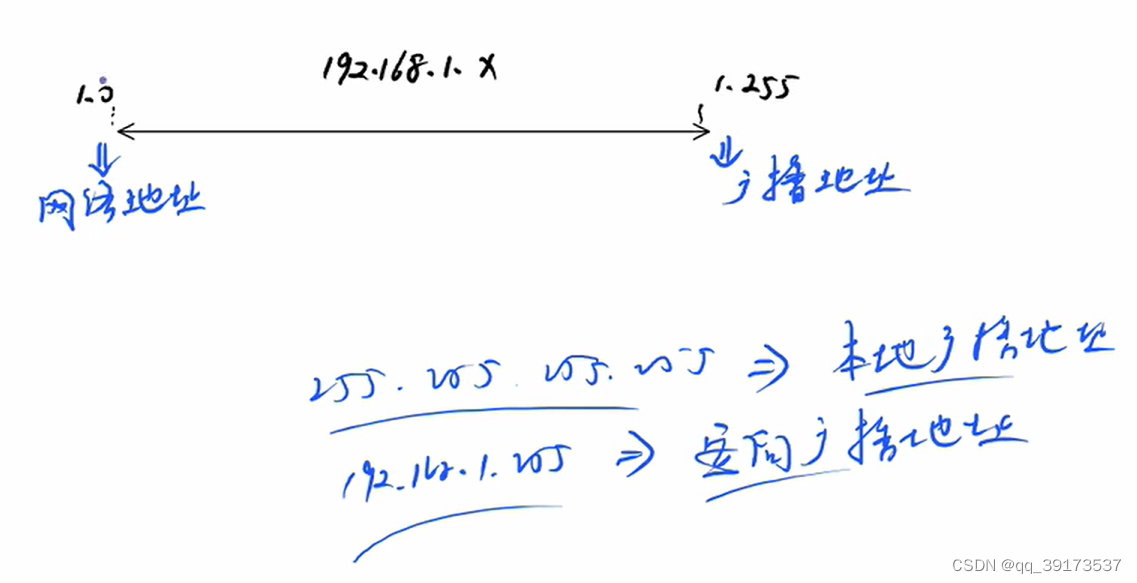 192.168.1.x
1.0
1.255
网络地址
广播地址
255.255.255.255 ⇒ 本地广播地址
192.168.1.255 ⇒ 定向广播地址
CSDN @qq_39173537